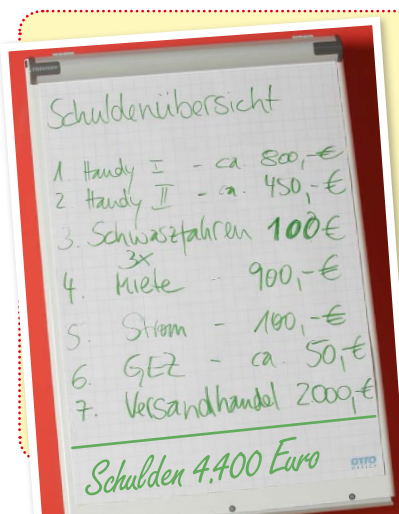 Schuldenübersicht
1 Handy I - ca. 800,-€
2 Handy II - ca. 450,-€
3. Schwarzfahren 100€
3x
4. Miete - 900,-€
5. Strom - 100,-€
6. GEZ - ca. 50,-€
7. Versandhandel 2000,-€
Schulden 4.400 Euro
OTTO
OFFICE